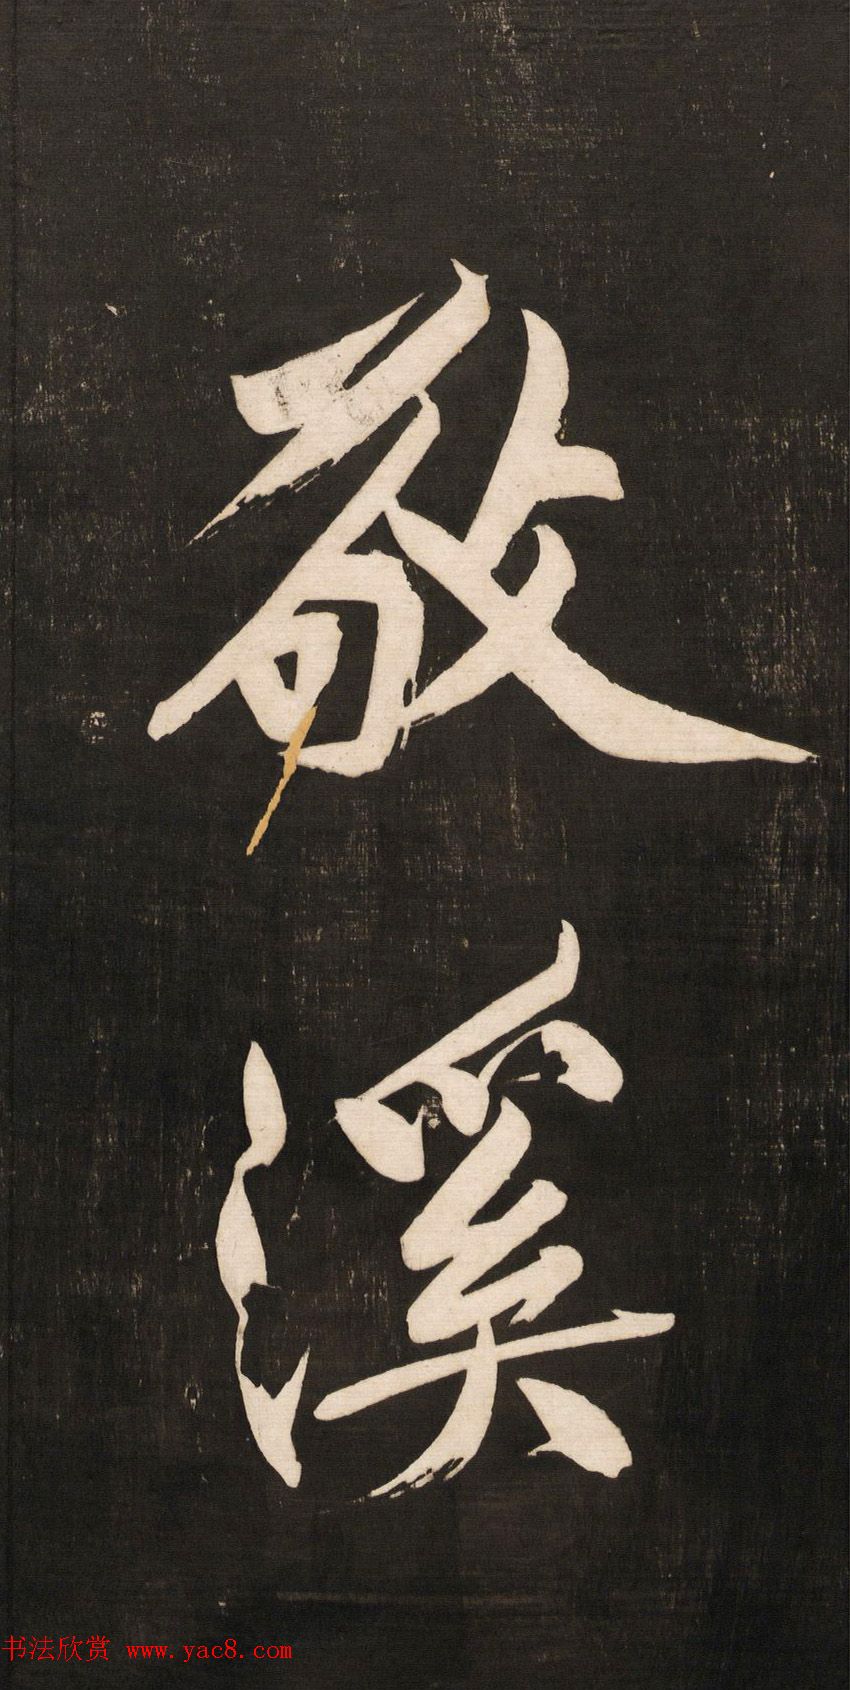 敬
溪
书法欣赏 www.yac8.com